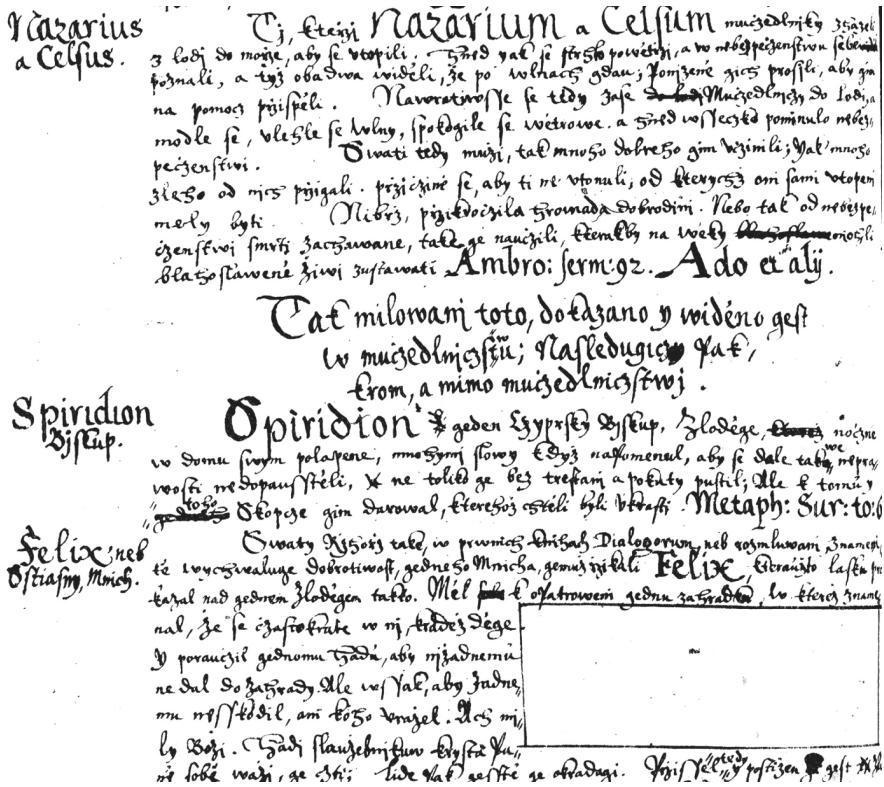 Nazarius
a Celsus.
Tj, kteřj Nazarium a Celsum mučzedlniky
z lodj do morže, aby se vtopili. Hned yak se strhlo powětřj, a w nebezpeczenstwu
poznali, a tyž obadwa widěli, že po wlnach gdau; Ponjzeně gich prosyli, aby gim
na pomocz přispěli. Nawratiwsse se tedy zase Mučzedlniczy do lodj, a
modle se, vlehle se wlny, spokogile se wětrowe. a hned wsseczko pominulo nebez,
peczenstwi. Swati tedy muži, tak mnoho dobreho gim včzinili; yak mnoho
zleho od nich přigali. přičzině se, aby ti ne vtonuli, od kterychž oni sami vtopeni
měly byti. Nibrž, přikročzila hromada dobrodinj. Nebo tak od nebezpe,
czenstwj smrti zachowane, take ge naučzili, kterakby na wěky
blahoslaweně žiwi zustawati Ambro: serm: 92. Ado et alij.
Tak milowanj toto, dokazano y widěno gest
w mučzedlnjczstwu; Nasledugicz Pak,
krom, a mimo mučzedlniczstwj.
Spiridion
Bjskup.
Spiridion geden Czyprsky Bjskup, Zloděge, nočzně
w domu swym polapene, mnohymi slowy když napomenul, aby se dale takowe nepra,
wosti nedopausstěli, ne toliko ge bez trestanj a pokuty pustil; Ale k tomu y
toho Skopcze gim darowal, kterehož chtěli byli vkrasti. Metaph: Sur: to: 6
Felix: neb
Ostiarny, Mnich.
Swaty Ržehorž take, w prwnich knihah Dialogorum, neb rozmluwanj
wychwaluge dobrotiwost, gedneho Mnicha, gemuž řjkali Felix, kteraužto lasku
kazal nad gednem Zlodegem takto. Měl k opatrowenj gednu zahradku, w kterez
nal, že se čzastokrate w nj, kradež děge.
Y poraučzil gednomu Hadu, aby nižadnemu
ne dal do zahrady. Ale wssak, aby žadne,
mu nesskodil, ani koho vrazel. Ach mi,
ly Boži. Hadi služebnikuw krysta Pa,
ně sobě wažj, ge cztj; lide pak gesstě ge okradagi. Přissel tedy y postižen gest